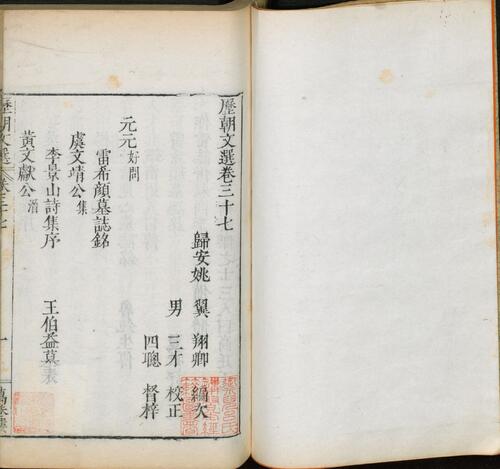 歷朝文選卷三十七
歸安姚翼翔卿編次
男三才校正
四聰督梓
元元好問
雷希顏墓誌銘
虞文靖公集
李景山詩集序
王伯益墓表
黃文獻公溍
歷朝文選
卷三十七
一